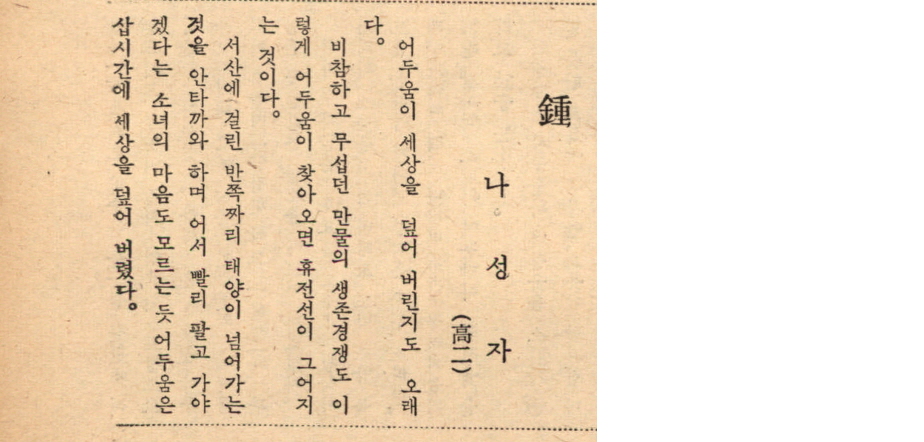 鍾
나 성 자
(高二)
어두움이 세상을 덮어 버린지도 오래
다。
비참하고 무섭던 만물의 생존경쟁도 이
렇게 어두움이 찾아오면 휴전선이 그어지
는 것이다。
서산에 걸린 반쪽짜리 태양이 넘어가는
것을 안타까와 하며 어서 빨리 팔고 가야
겠다는 소녀의 마음도 모르는 듯 어두움은
삽시간에 세상을 덮어 버렸다。